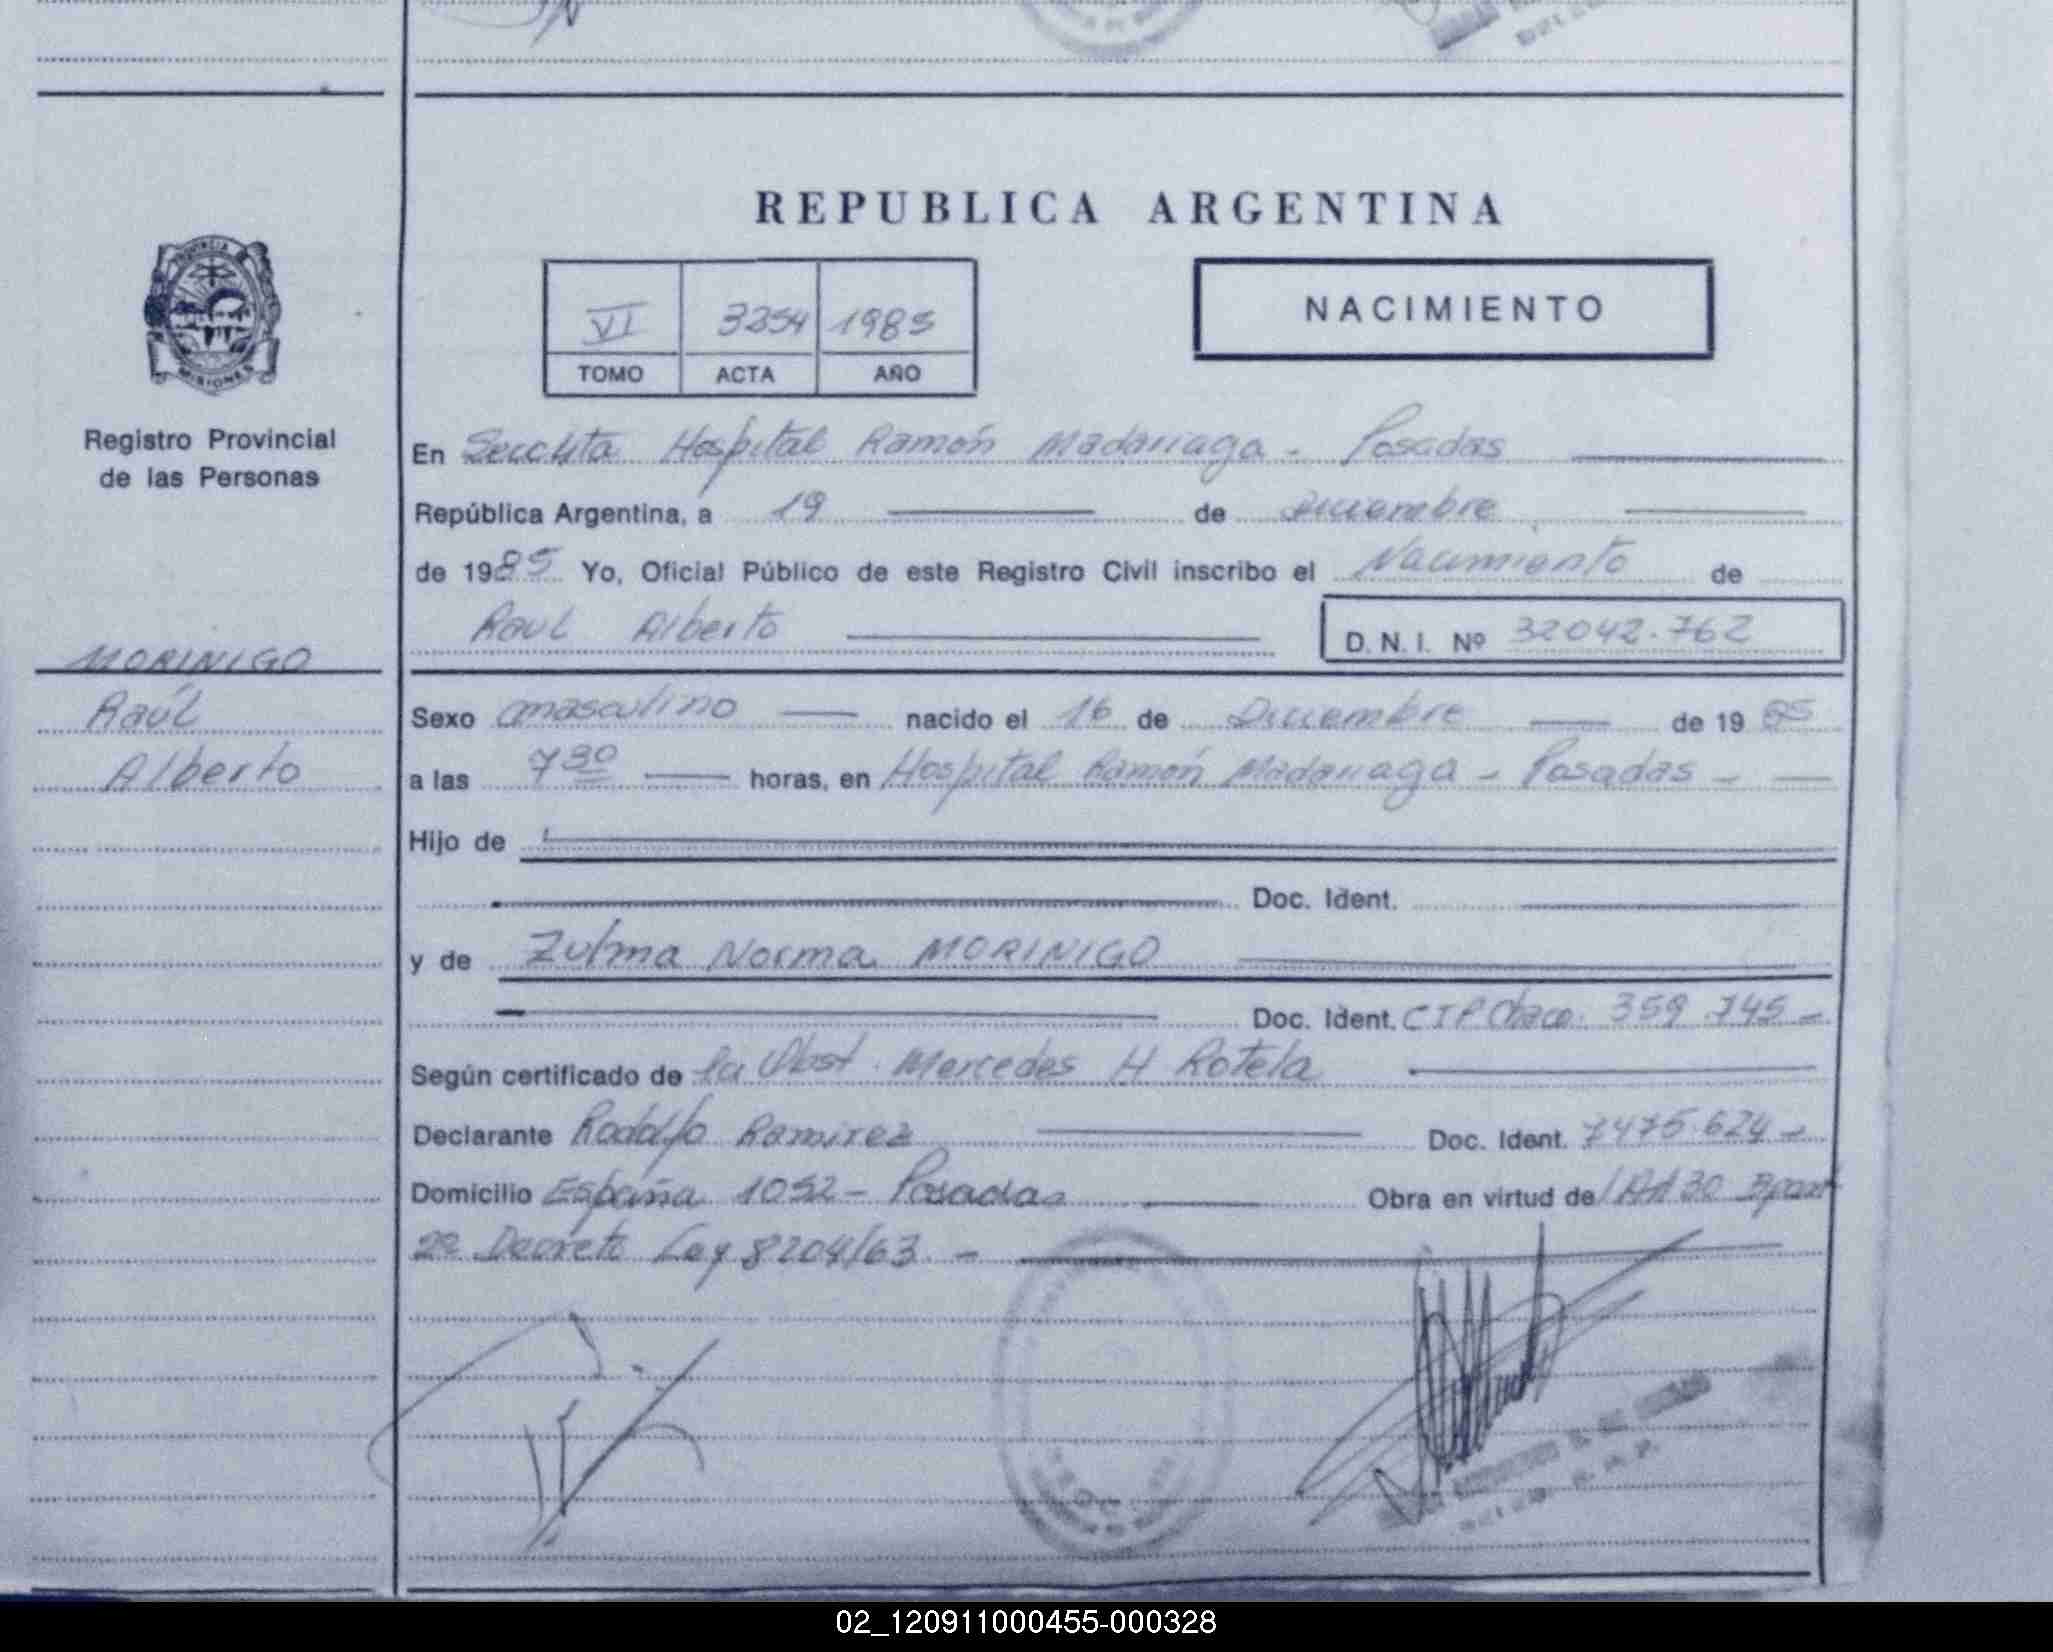 REPUBLICA ARGENTINA
VI 3254 1985
TOMO ACTA AÑO
NACIMIENTO
PROVINCIA
MISIONES
Registro Provincial
de las Personas
MORINIGO
Raúl
Alberto
En Hospital Ramón Madariaga - Posadas
República Argentina, a 19 de Diciembre
de 1985 Yo, Oficial Público de este Registro Civil inscribo el Nacimiento de
Raul Alberto
D. N. I. Nº 32042.762
Sexo masculino nacido el 16 de Diciembre de 1985
a las 7 30 horas, en Hospital Ramón Madariaga - Posadas -
Hijo de
Doc. Ident.
y de Zulma Norma MORINIGO
Doc. Ident. CIP Chaco. 359 745 -
Según certificado de la Obst. Mercedes H Rotela
Declarante Rodolfo Ramirez Doc. Ident. 7475.624 -
Domicilio España 1052 - Posadas Obra en virtud de Art 30
2º Decreto Ley 8204/63 -
02_120911000455-000328